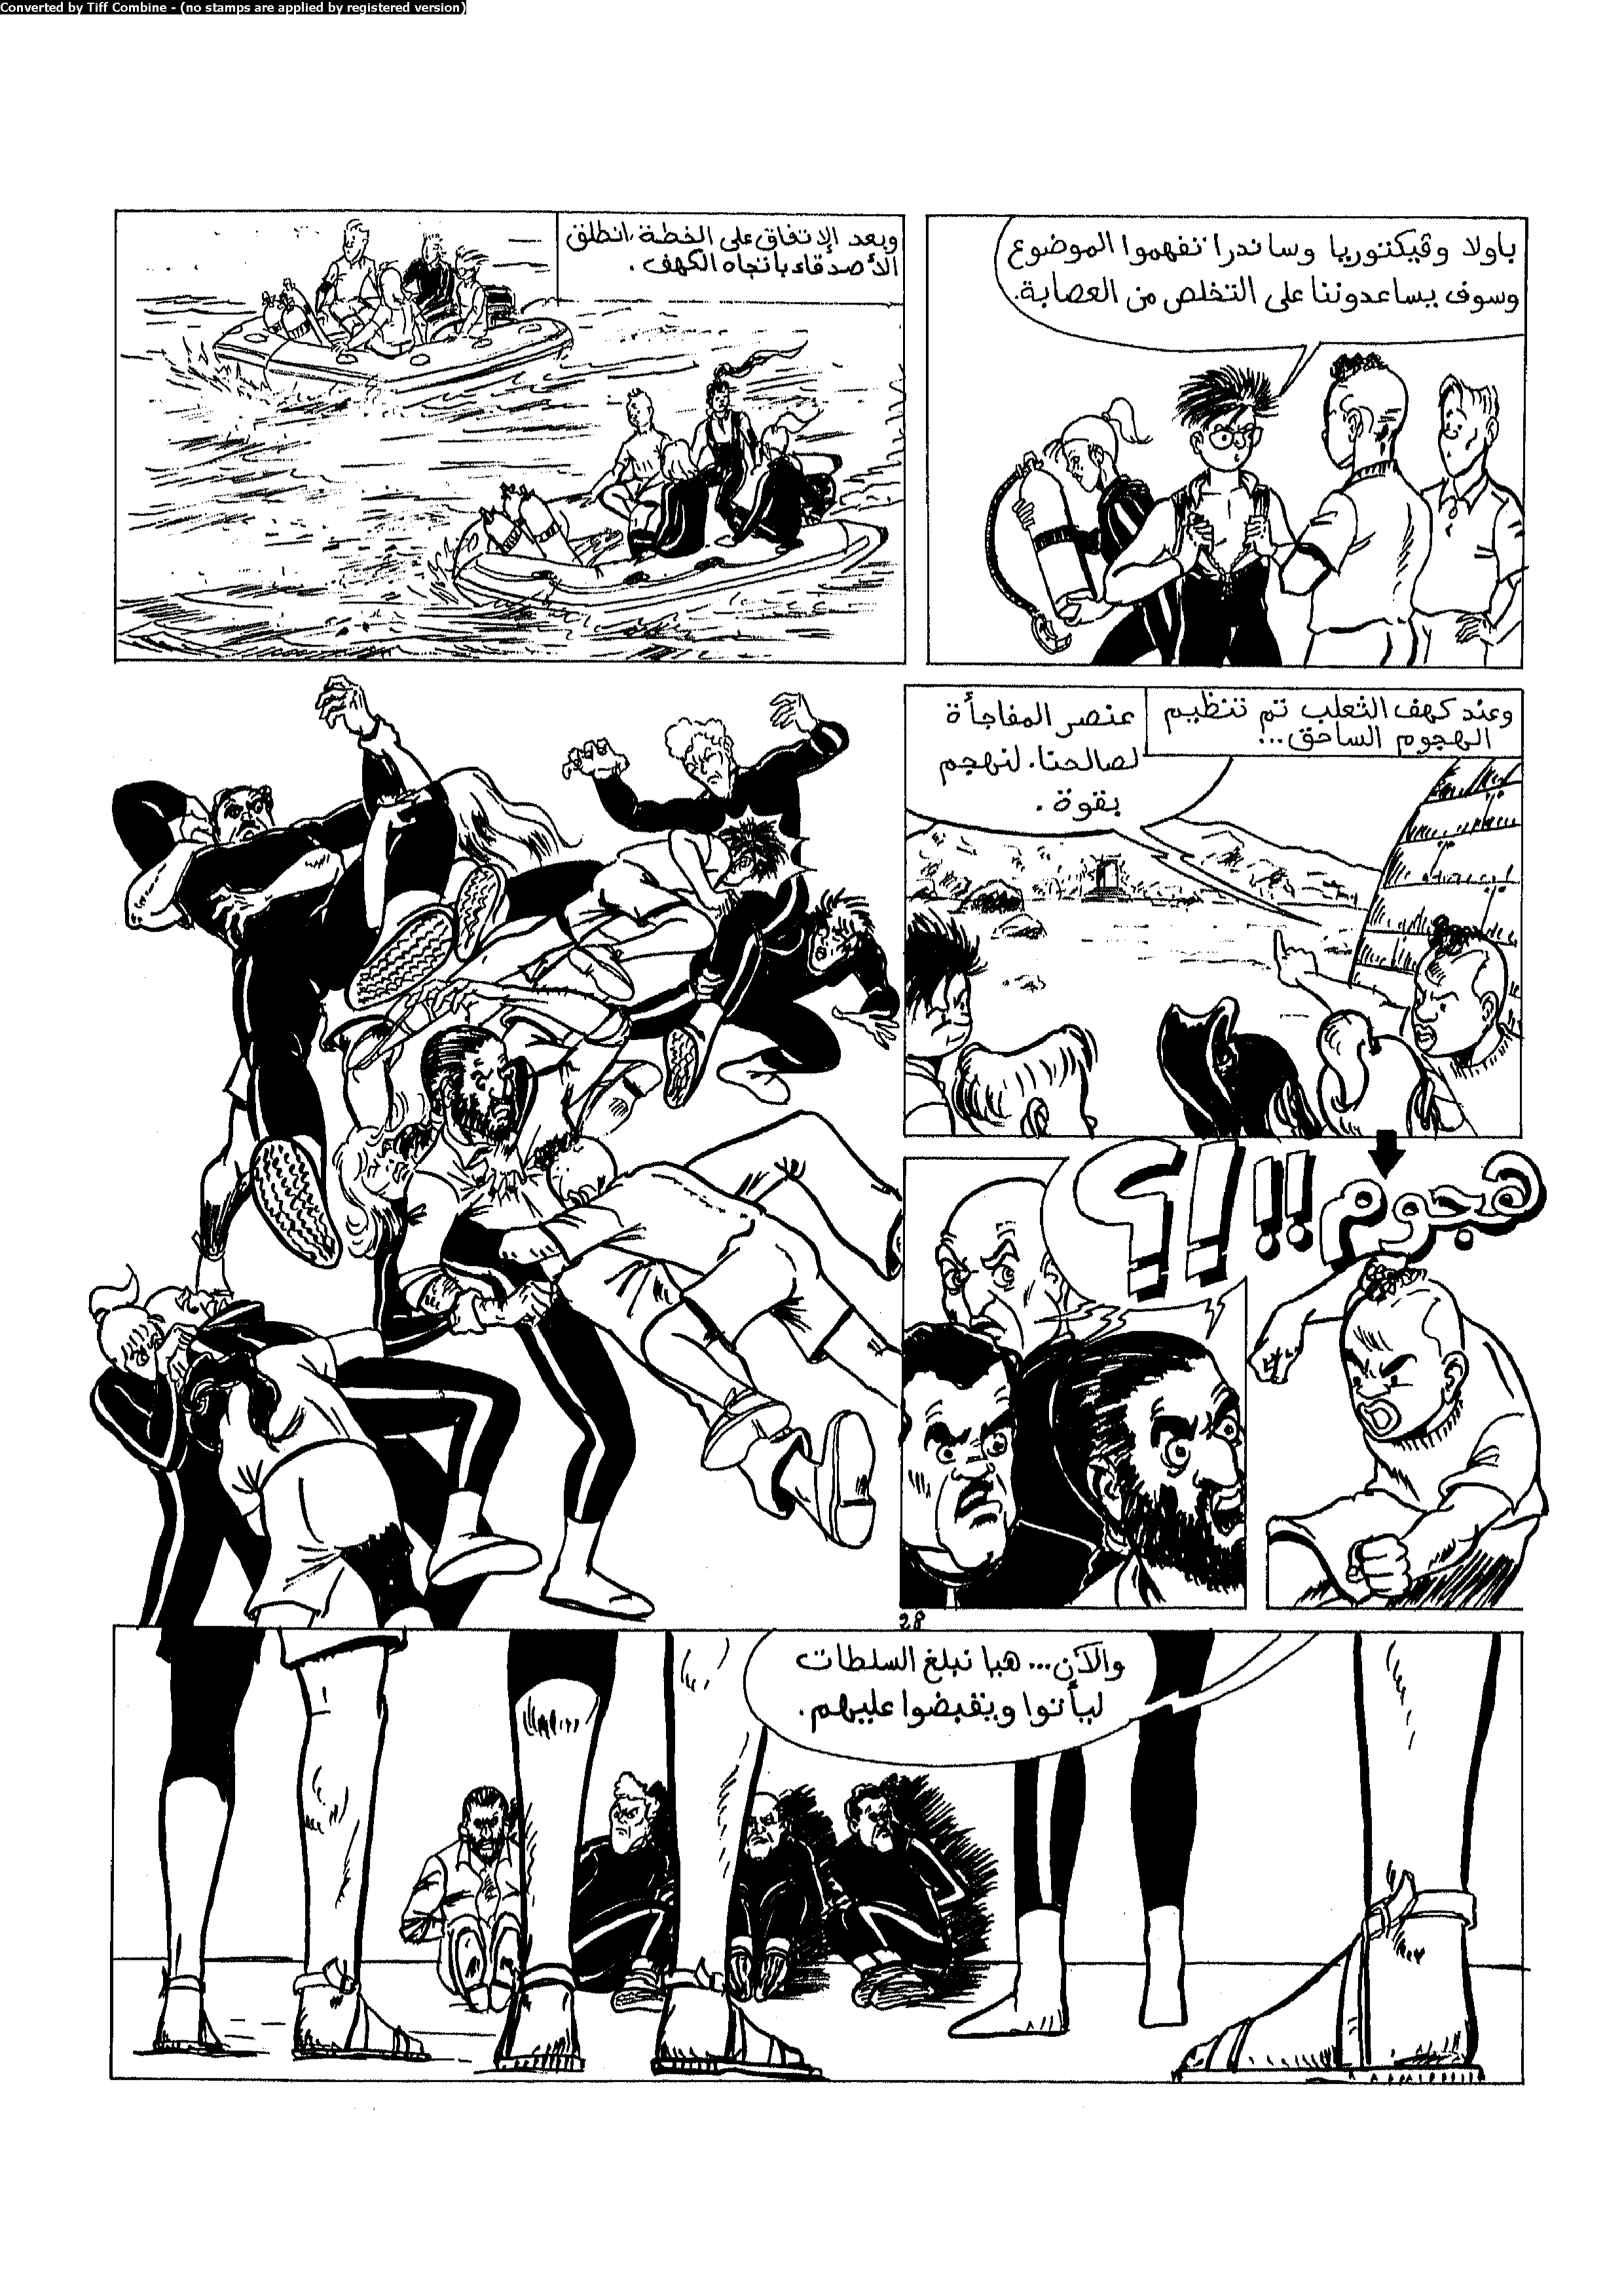 Converted by Tiff Combine - (no stamps are applied by registered version)
باولا وڤيكتوريا وساندرا تفهموا الموضوع
وسوف يساعدوننا على التخلص من العصابة.
وبعد الإتفاق على الخطة، انطلق
الأصدقاء باتجاه الكهف.
وعند كهف الثعلب تم تنظيم
الهجوم الساحق...!
عنصر المفاجأة
لصالحنا. لنهجم
بقوة.
هجوم!!!؟
28
والآن... هيا نبلغ السلطات
ليأتوا ويقبضوا عليهم.